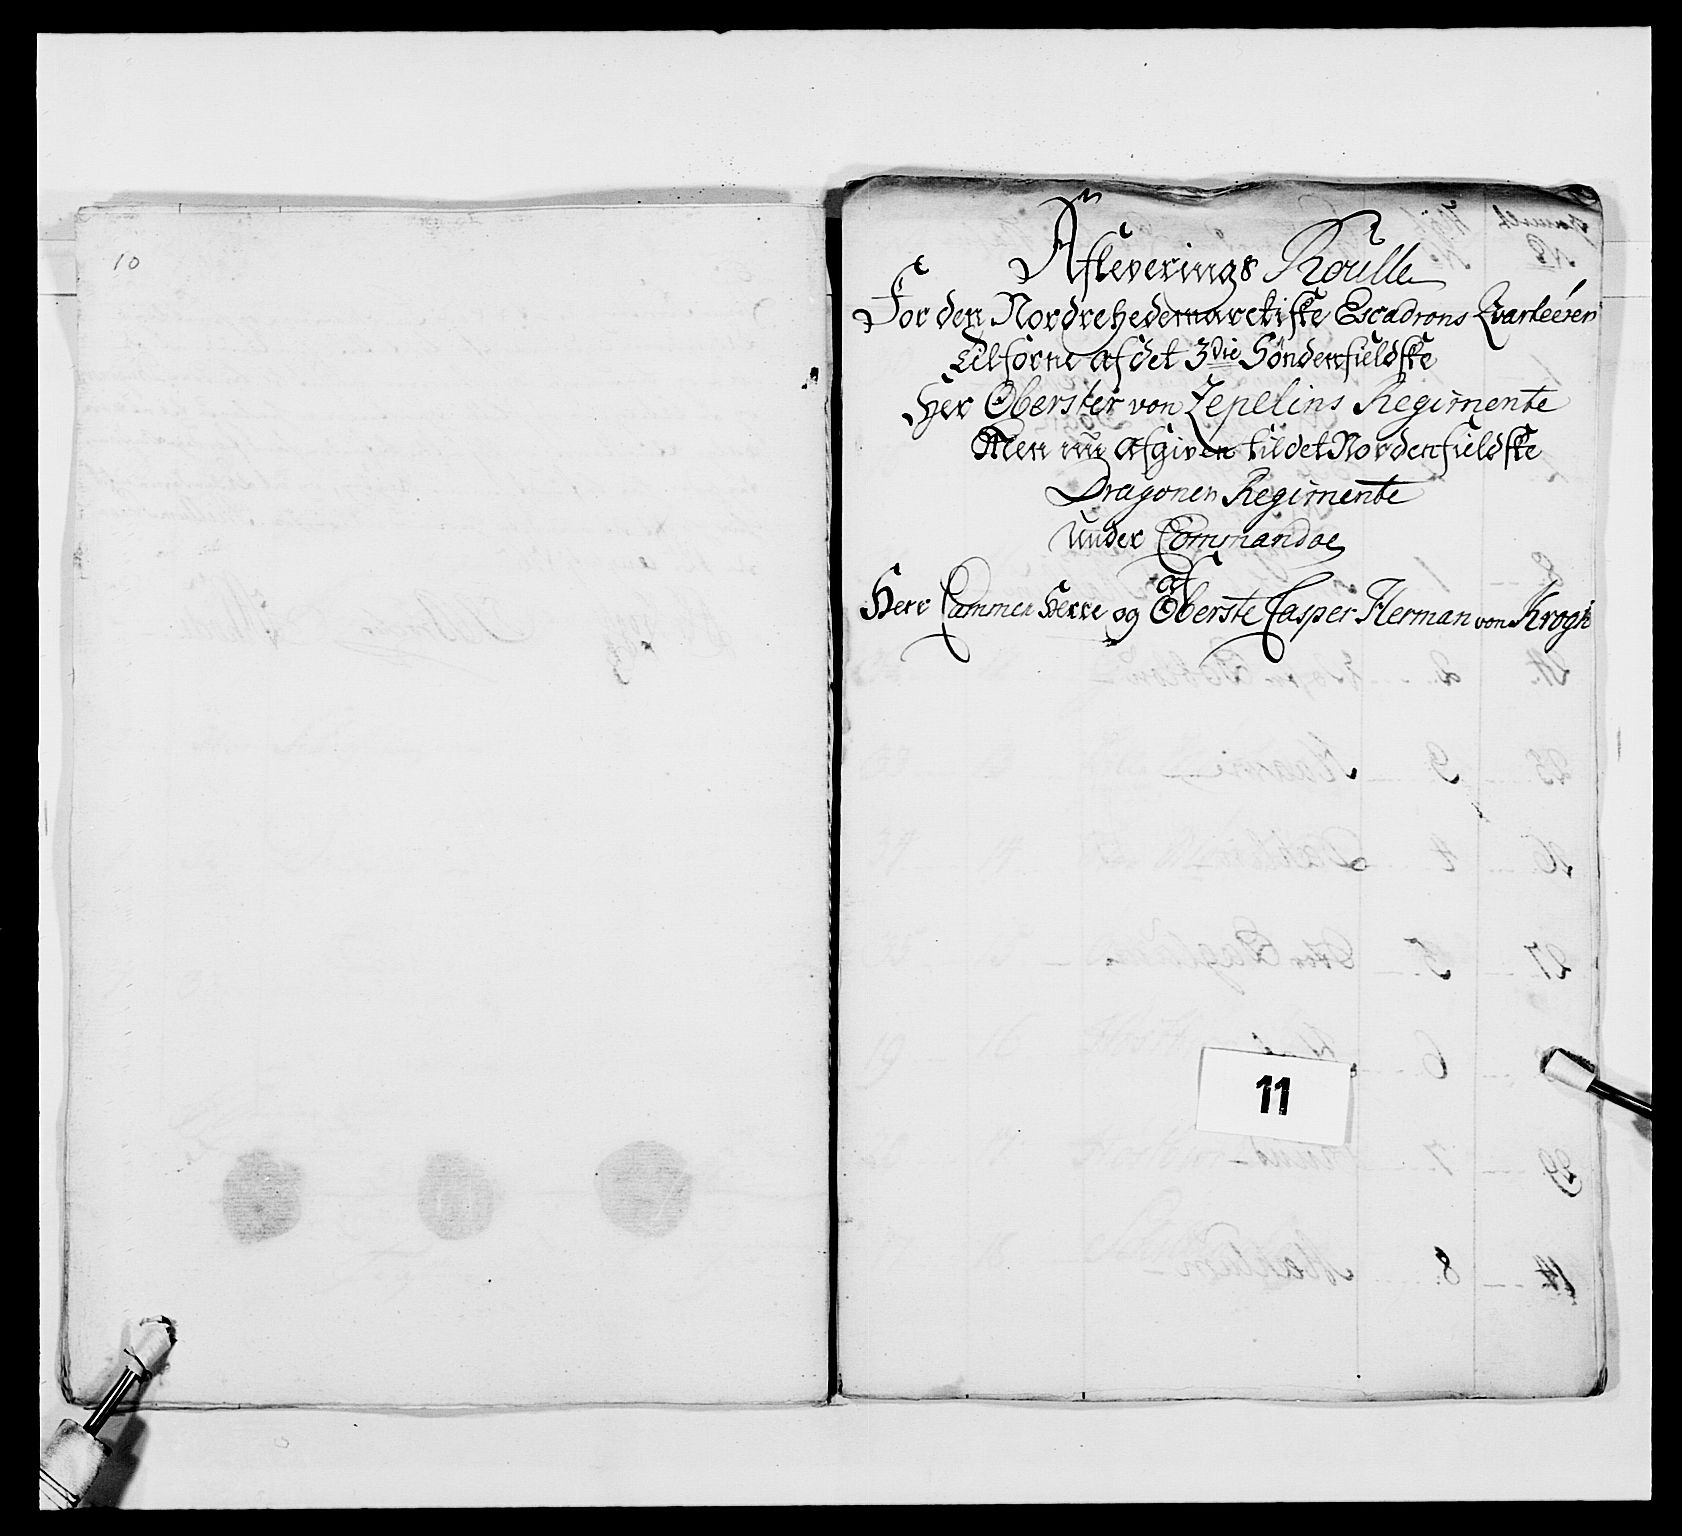 10
Afleverings Roulle
For den Nordrehedemarckiske Escadrons Qvarteerer
Tilforne af det 3die Søndenfieldske
Her Oberster von Zepelins Regimente
Men nu afgiven til det Nordenfieldske
Dragoner Regimente
Under Commandoe
af
Herr Cammer Herre og Oberste Casper Herman von Krogh
11